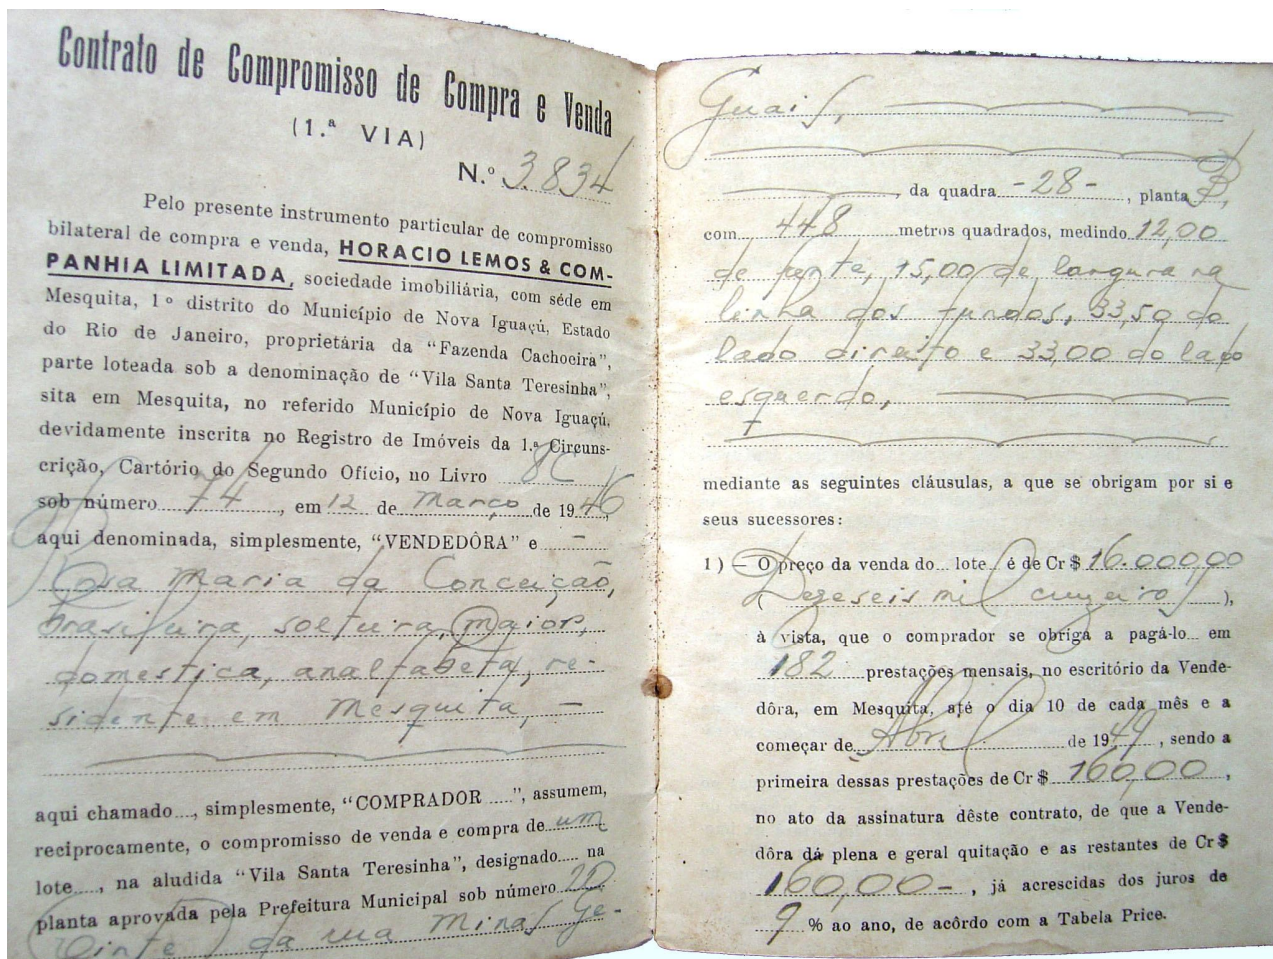 Contrato de Compromisso de Compra e Venda
(1.ª VIA)
N.º 3.834
Pelo presente instrumento particular de compromisso
bilateral de compra e venda, HORACIO LEMOS & COM-
PANHIA LIMITADA, sociedade imobiliária, com séde em
Mesquita, 1º distrito do Município de Nova Iguaçú, Estado
do Rio de Janeiro, proprietária da "Fazenda Cachoeira",
parte loteada sob a denominação de "Vila Santa Teresinha",
sita em Mesquita, no referido Município de Nova Iguaçú,
devidamente inscrita no Registro de Imóveis da 1.ª Circuns-
crição, Cartório do Segundo Ofício, no Livro 8C
sob número 74, em 12 de Março de 1946,
aqui denominada, simplesmente, "VENDEDÔRA" e -
Rosa Maria da Conceição,
brasileira, solteira, maior,
domestica, analfabeta, re-
sidente em Mesquita, -
aqui chamado...., simplesmente, "COMPRADOR .....", assumem,
reciprocamente, o compromisso de venda e compra de um
lote...., na aludida "Vila Santa Teresinha", designado.... na
planta aprovada pela Prefeitura Municipal sob número 20
(vinte) da rua Minas Ge-
rais,
, da quadra -28-, planta
com 448 metros quadrados, medindo 12,00
de frente, 15,00 de largura na
linha dos fundos, 33,50 do
lado direito e 33,00 do lado
esquerdo,
mediante as seguintes cláusulas, a que se obrigam por si e
seus sucessores:
1) — O preço da venda do... lote é de Cr$ 16.000,00
(Dezeseis mil cruzeiros),
à vista, que o comprador se obriga a pagá-lo... em
182 prestações mensais, no escritório da Vende-
dôra, em Mesquita, até o dia 10 de cada mês e a
começar de Abril de 1949, sendo a
primeira dessas prestações de Cr$ 160,00,
no ato da assinatura dêste contrato, de que a Vende-
dôra dá plena e geral quitação e as restantes de Cr$
160,00-, já acrescidas dos juros de
9 % ao ano, de acôrdo com a Tabela Price.